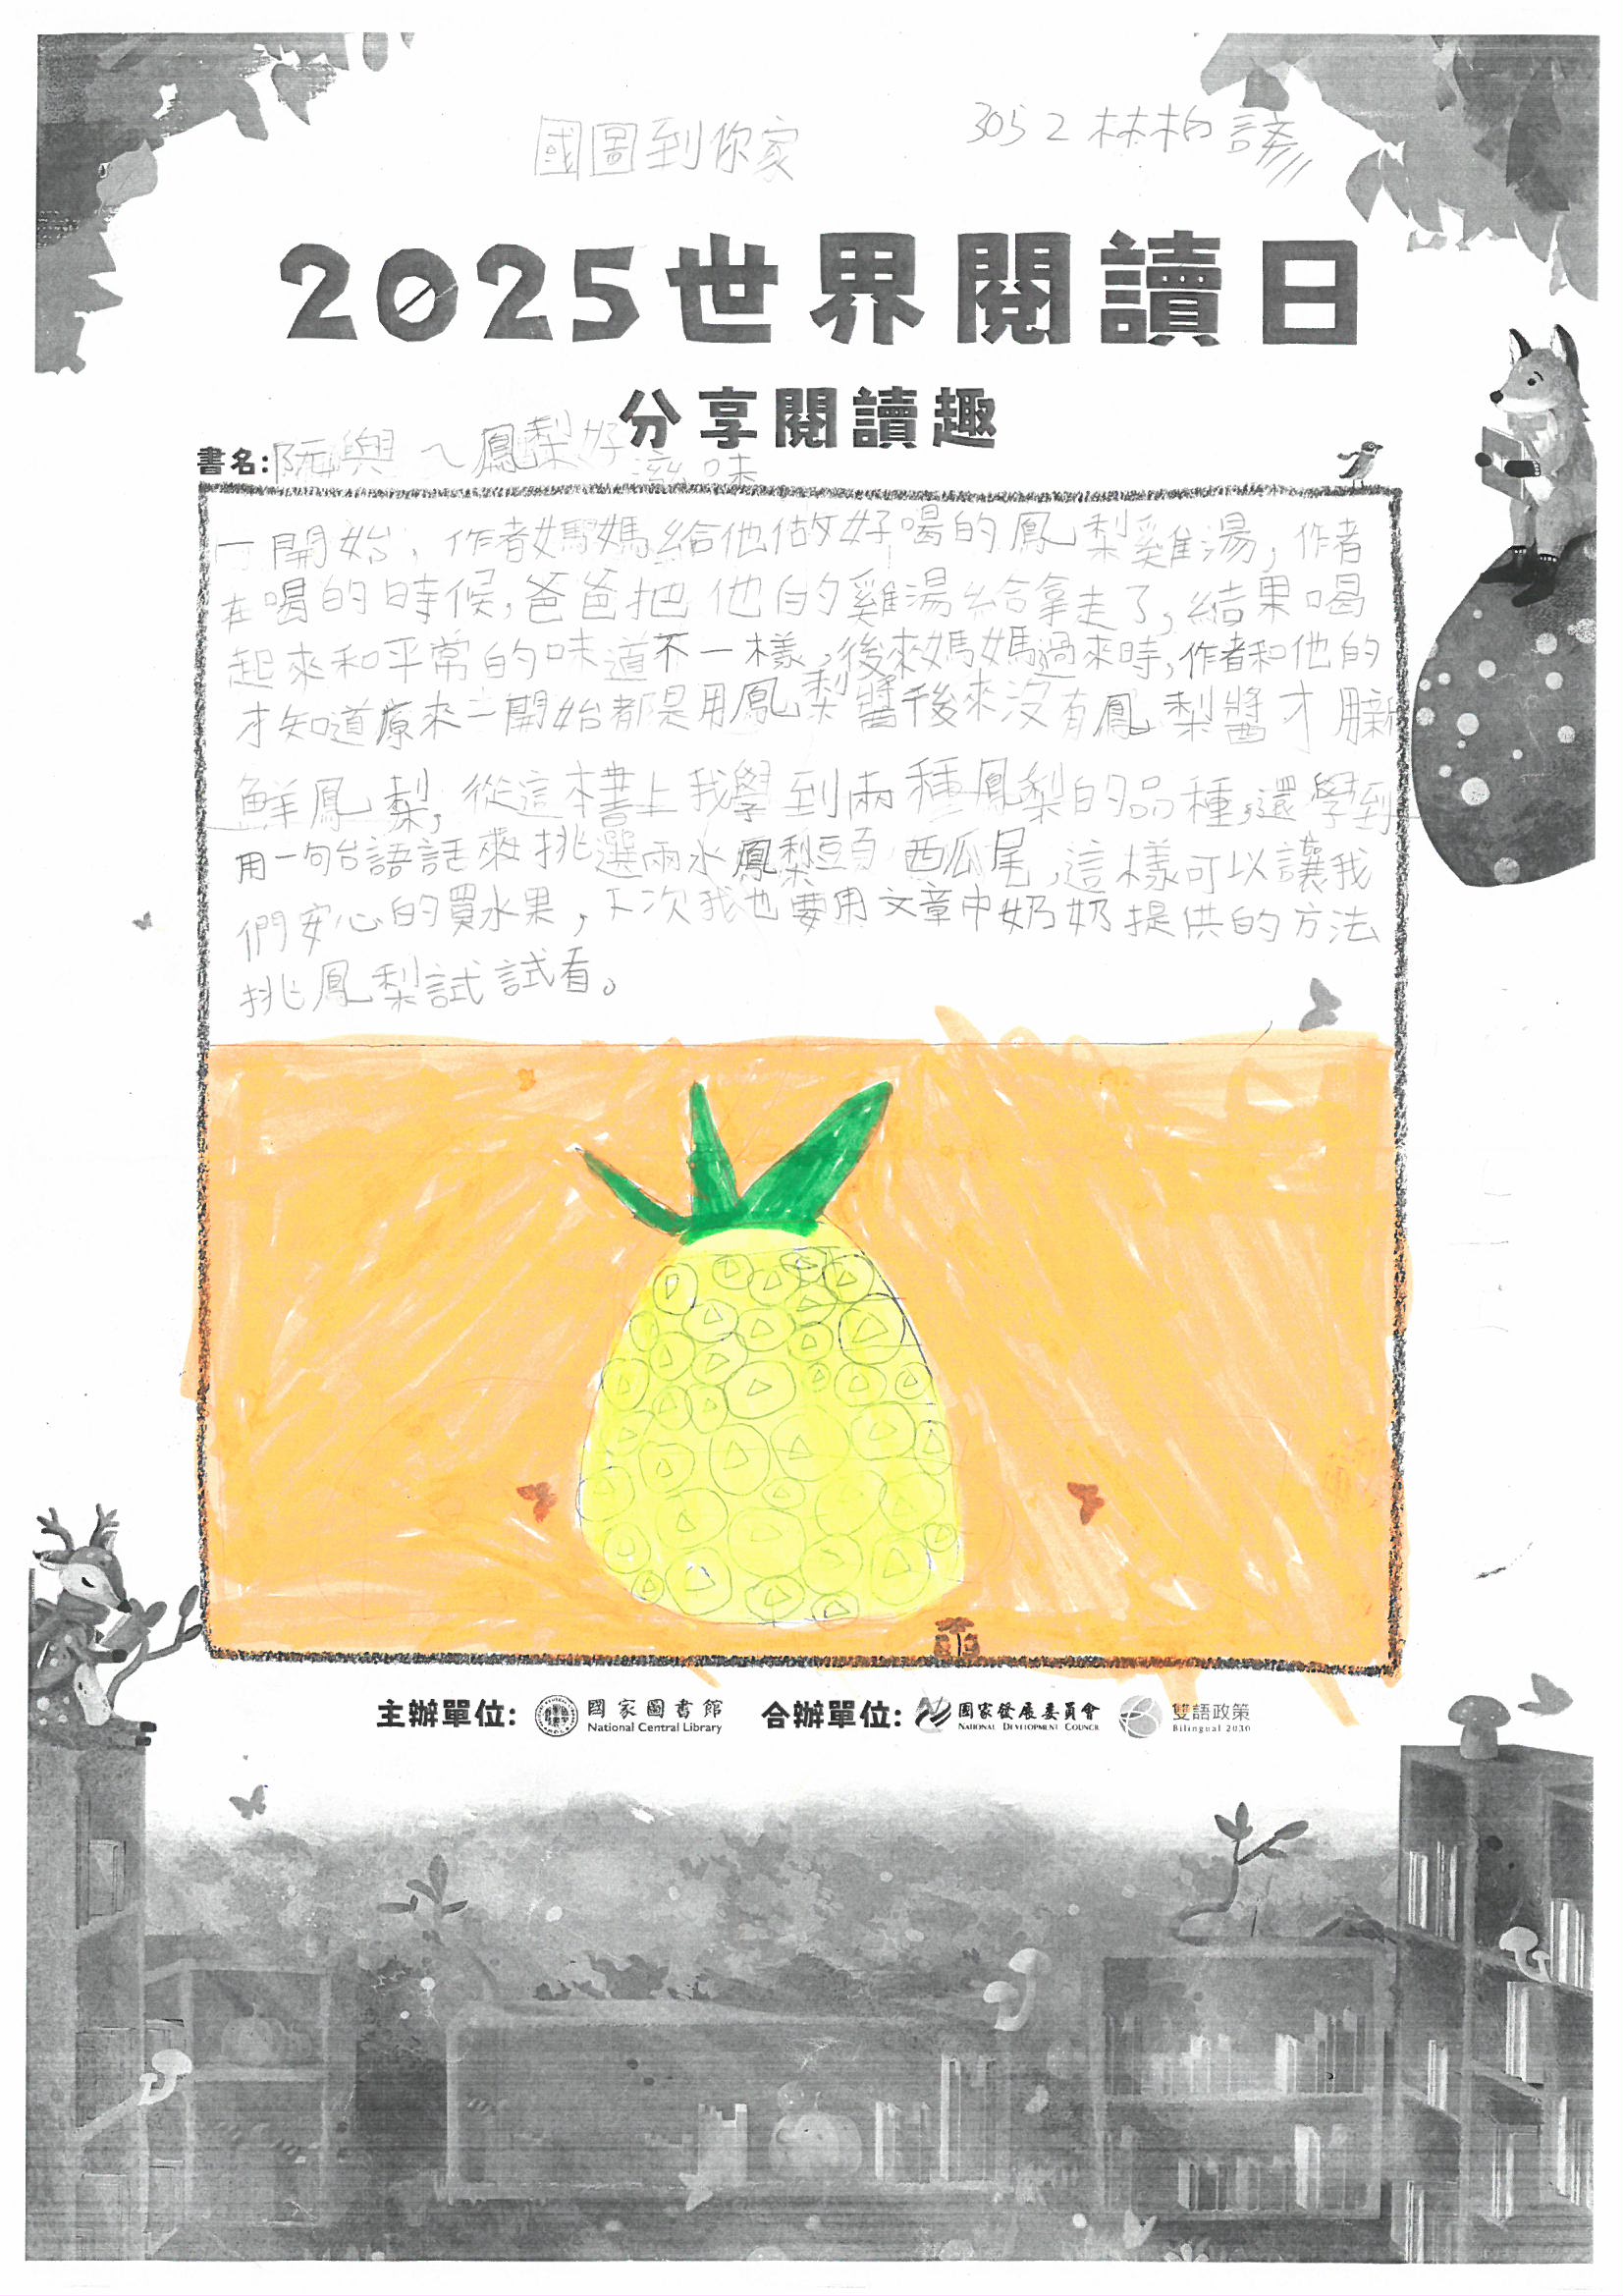 國圖到你家
305 2 林柏諺
2025世界閱讀日
分享閱讀趣
書名:阮興ㄟ鳳梨好
滋味
一開始，作者媽媽給他做好喝的鳳梨雞湯，作者
在喝的時候，爸爸把他的雞湯給拿走了，結果喝
起來和平常的味道不一樣，後來媽媽過來時，作者和他的
才知道原來一開始都是用鳳梨醬後來沒有鳳梨醬才用
鮮鳳梨，從這本書上我學到兩種鳳梨的品種，還學到
用一句台語話來挑選兩水鳳梨頭西瓜尾，這樣可以讓我
們安心的買水果，下次我也要用文章中奶奶提供的方法
挑鳳梨試試看。
主辦單位: 國家圖書館 National Central Library 合辦單位: 國家發展委員會 NATIONAL DEVELOPMENT COUNCIL 雙語政策 Bilingual 2030